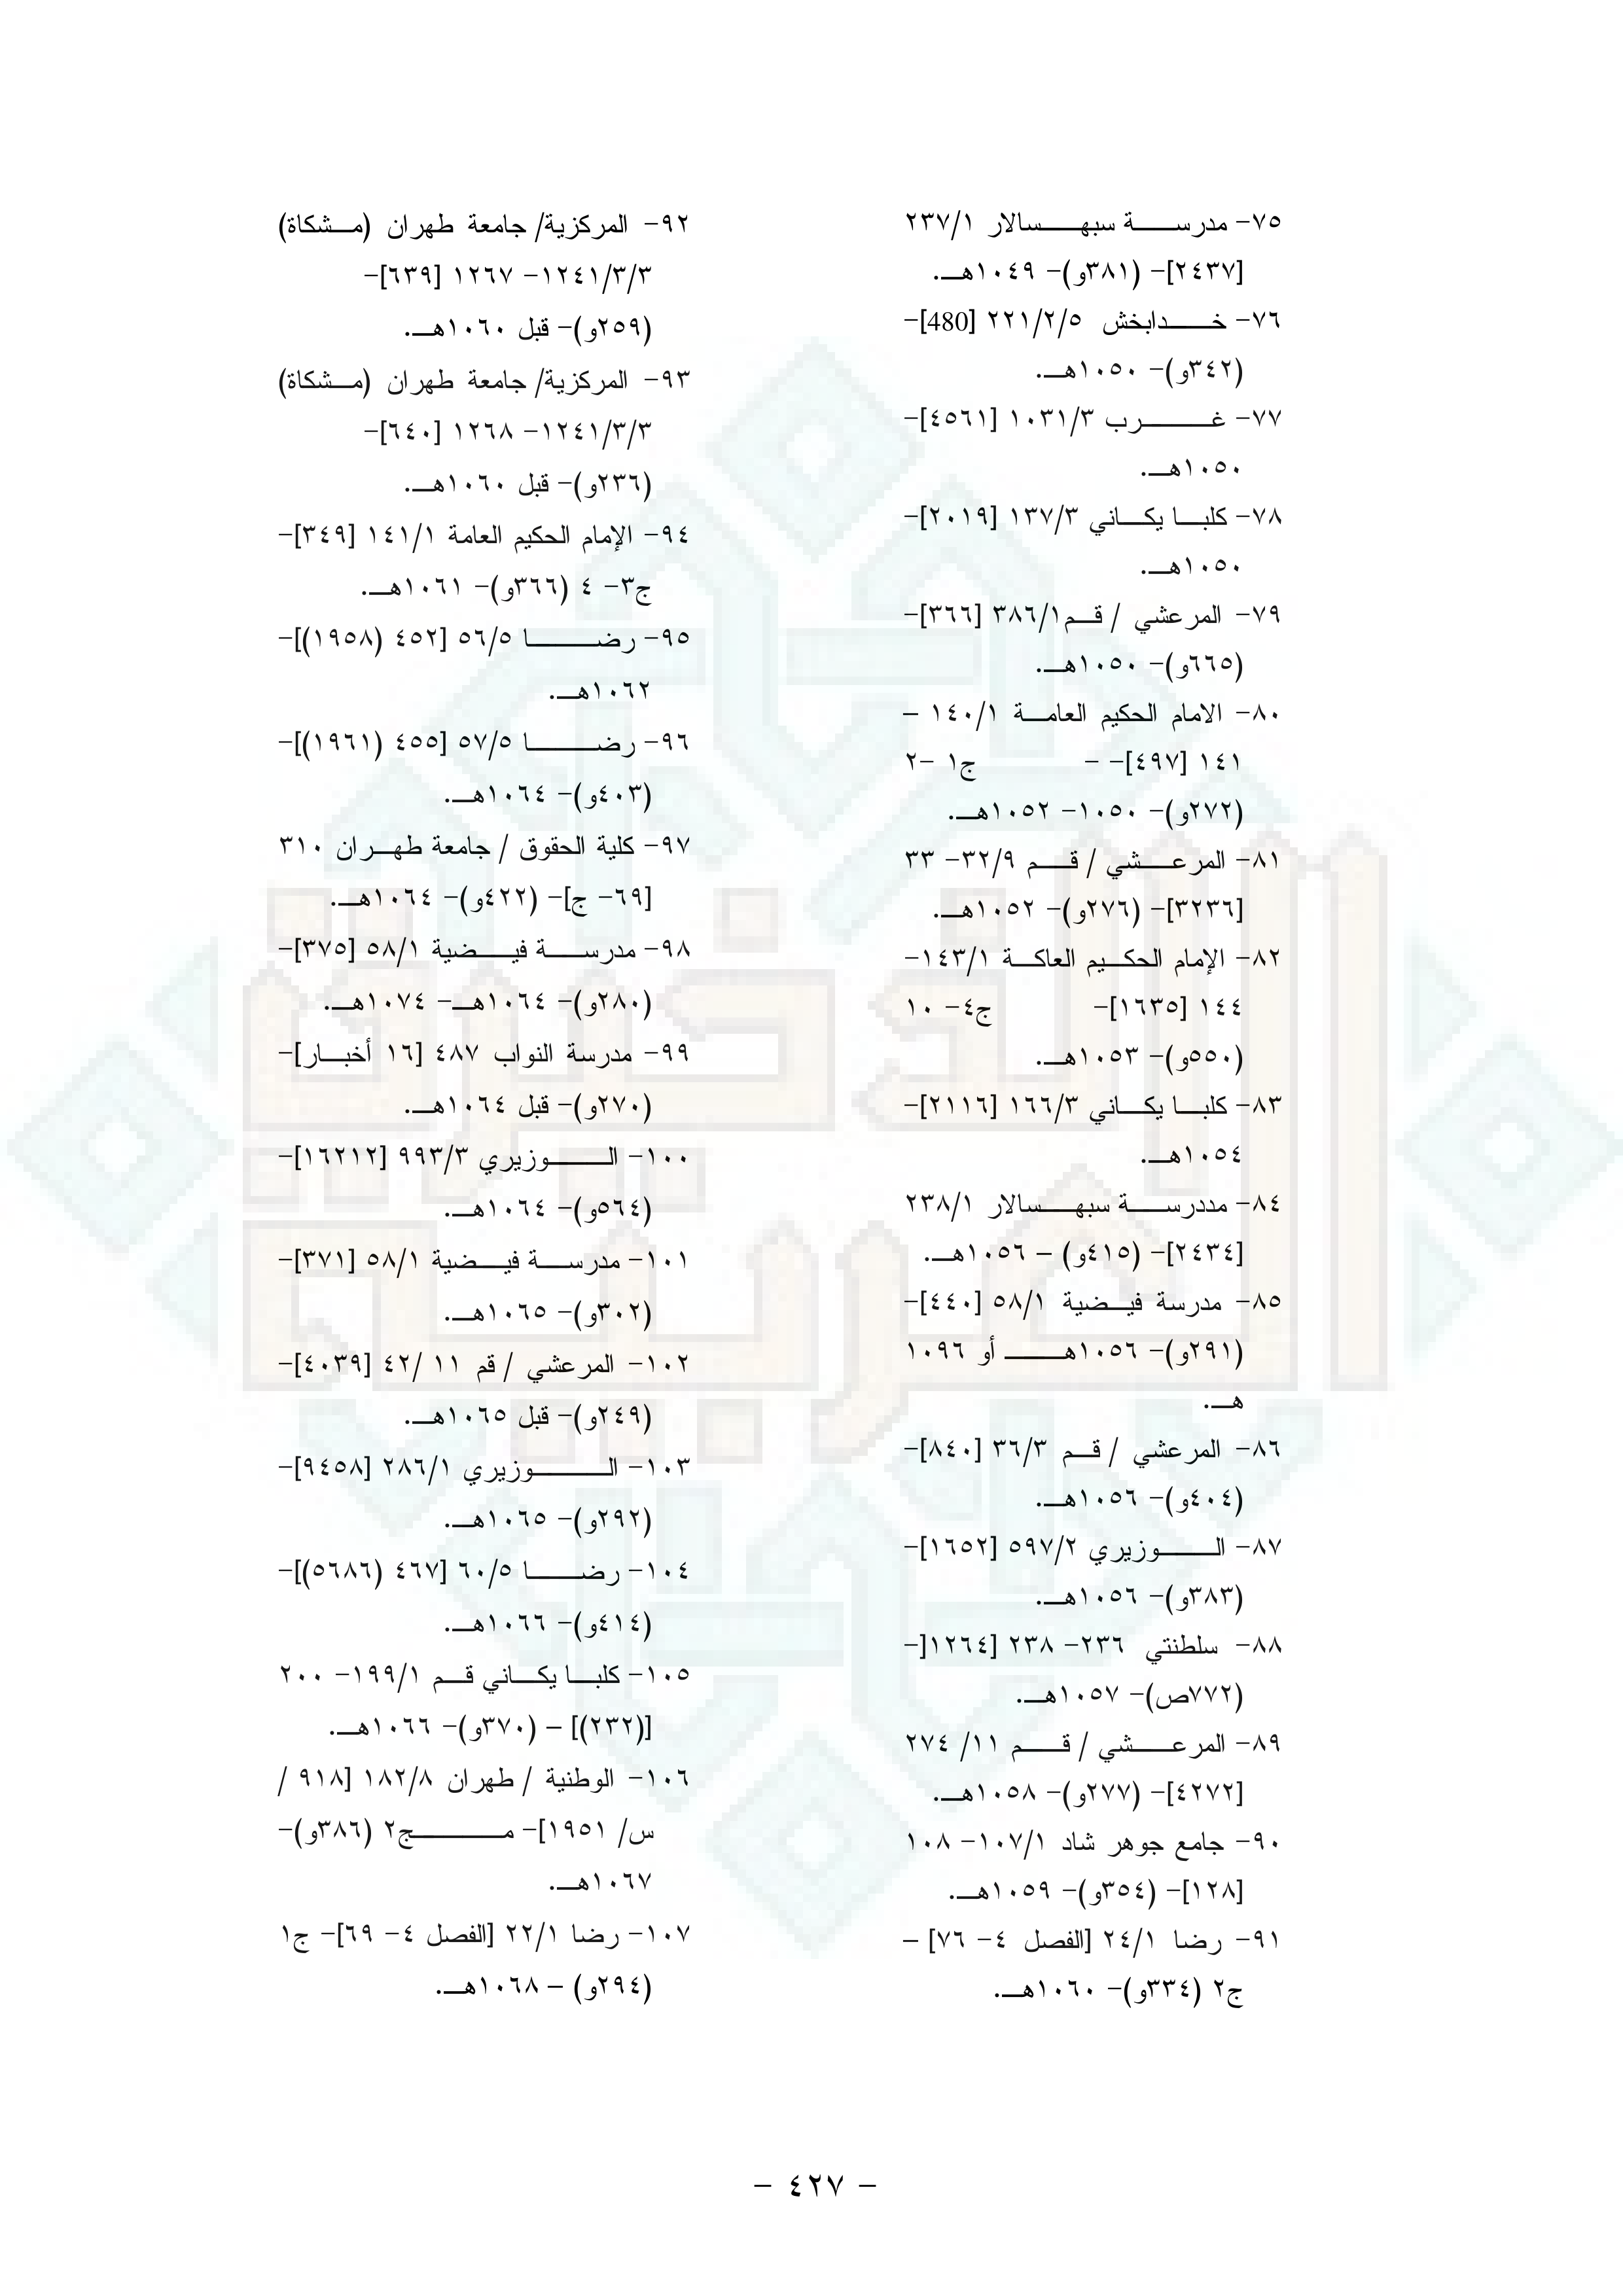 ٧٥- مدرسة سبهسالار ٢٣٧/١
[٢٤٣٧]- (٣٨١و)- ١٠٤٩هـ.
٧٦- خدابخش ٢٢١/٢/٥ [480]-
(٣٤٢و)- ١٠٥٠هـ.
٧٧- غرب ١٠٣١/٣ [٤٥٦١]-
١٠٥٠هـ.
٧٨- كلبا يكاني ١٣٧/٣ [٢٠١٩]-
١٠٥٠هـ.
٧٩- المرعشي / قم٣٨٦/١ [٣٦٦]-
(٦٦٥و)- ١٠٥٠هـ.
٨٠- الامام الحكيم العامة ١٤٠/١ –
١٤١ [٤٩٧]- - ج١ -٢
(٢٧٢و)- ١٠٥٠- ١٠٥٢هـ.
٨١- المرعشي / قم ٣٢/٩- ٣٣
[٣٢٣٦]- (٢٧٦و)- ١٠٥٢هـ.
٨٢- الإمام الحكيم العاكة ١٤٣/١-
١٤٤ [١٦٣٥]- ج٤- ١٠
(٥٥٠و)- ١٠٥٣هـ.
٨٣- كلبا يكاني ١٦٦/٣ [٢١١٦]-
١٠٥٤هـ.
٨٤- مددرسة سبهسالار ٢٣٨/١
[٢٤٣٤]- (٤١٥و) – ١٠٥٦هـ.
٨٥- مدرسة فيضية ٥٨/١ [٤٤٠]-
(٢٩١و)- ١٠٥٦هـ أو ١٠٩٦
هـ.
٨٦- المرعشي / قم ٣٦/٣ [٨٤٠]-
(٤٠٤و)- ١٠٥٦هـ.
٨٧- الوزيري ٥٩٧/٢ [١٦٥٢]-
(٣٨٣و)- ١٠٥٦هـ.
٨٨- سلطنتي ٢٣٦- ٢٣٨ [١٢٦٤[-
(٧٧٢ص)- ١٠٥٧هـ.
٨٩- المرعشي / قم ١١/ ٢٧٤
[٤٢٧٢]- (٢٧٧و)- ١٠٥٨هـ.
٩٠- جامع جوهر شاد ١٠٧/١- ١٠٨
[١٢٨]- (٣٥٤و)- ١٠٥٩هـ.
٩١- رضا ٢٤/١ [الفصل ٤- ٧٦] –
ج٢ (٣٣٤و)- ١٠٦٠هـ.
٩٢- المركزية/ جامعة طهران (مشكاة)
١٢٤١/٣/٣- ١٢٦٧ [٦٣٩]-
(٢٥٩و)- قبل ١٠٦٠هـ.
٩٣- المركزية/ جامعة طهران (مشكاة)
١٢٤١/٣/٣- ١٢٦٨ [٦٤٠]-
(٢٣٦و)- قبل ١٠٦٠هـ.
٩٤- الإمام الحكيم العامة ١٤١/١ [٣٤٩]-
ج٣- ٤ (٣٦٦و)- ١٠٦١هـ.
٩٥- رضا ٥٦/٥ [٤٥٢ (١٩٥٨)]-
١٠٦٢هـ.
٩٦- رضا ٥٧/٥ [٤٥٥ (١٩٦١)]-
(٤٠٣و)- ١٠٦٤هـ.
٩٧- كلية الحقوق / جامعة طهران ٣١٠
[٦٩- ج]- (٤٢٢و)- ١٠٦٤هـ.
٩٨- مدرسة فيضية ٥٨/١ [٣٧٥]-
(٢٨٠و)- ١٠٦٤هـ- ١٠٧٤هـ.
٩٩- مدرسة النواب ٤٨٧ [١٦ أخبار]-
(٢٧٠و)- قبل ١٠٦٤هـ.
١٠٠- الوزيري ٩٩٣/٣ [١٦٢١٢]-
(٥٦٤و)- ١٠٦٤هـ.
١٠١- مدرسة فيضية ٥٨/١ [٣٧١]-
(٣٠٢و)- ١٠٦٥هـ.
١٠٢- المرعشي / قم ١١ /٤٢ [٤٠٣٩]-
(٢٤٩و)- قبل ١٠٦٥هـ.
١٠٣- الوزيري ٢٨٦/١ [٩٤٥٨]-
(٢٩٢و)- ١٠٦٥هـ.
١٠٤- رضا ٦٠/٥ [٤٦٧ (٥٦٨٦)]-
(٤١٤و)- ١٠٦٦هـ.
١٠٥- كلبا يكاني قم ١٩٩/١- ٢٠٠
[(٢٣٢)] – (٣٧٠و)- ١٠٦٦هـ.
١٠٦- الوطنية / طهران ١٨٢/٨ [٩١٨ /
س/ ١٩٥١]- مج٢ (٣٨٦و)-
١٠٦٧هـ.
١٠٧- رضا ٢٢/١ [الفصل ٤- ٦٩]- ج١
(٢٩٤و) – ١٠٦٨هـ.
- ٤٢٧ -
الذخيرة
العربية